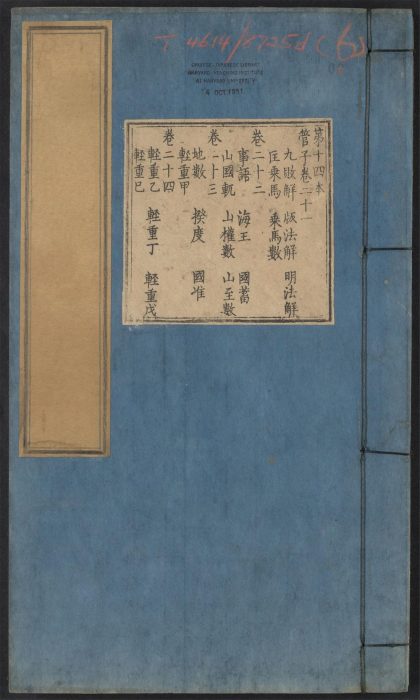 T 4614/8725d (6)
CHINESE-JAPANESE LIBRARY
HARVARD-YENCHING INSTITUTE
AT HARVARD UNIVERSITY
OCT 1951
第十四本
管子卷二十一
九敗解 版法解 明法解
匡乘馬 乘馬數
卷二十二
事語 海王 國蓄
山國軌 山權數 山至數
卷二十三
地數 揆度 國准
輕重甲
卷二十四
輕重乙 輕重丁 輕重戊
輕重己